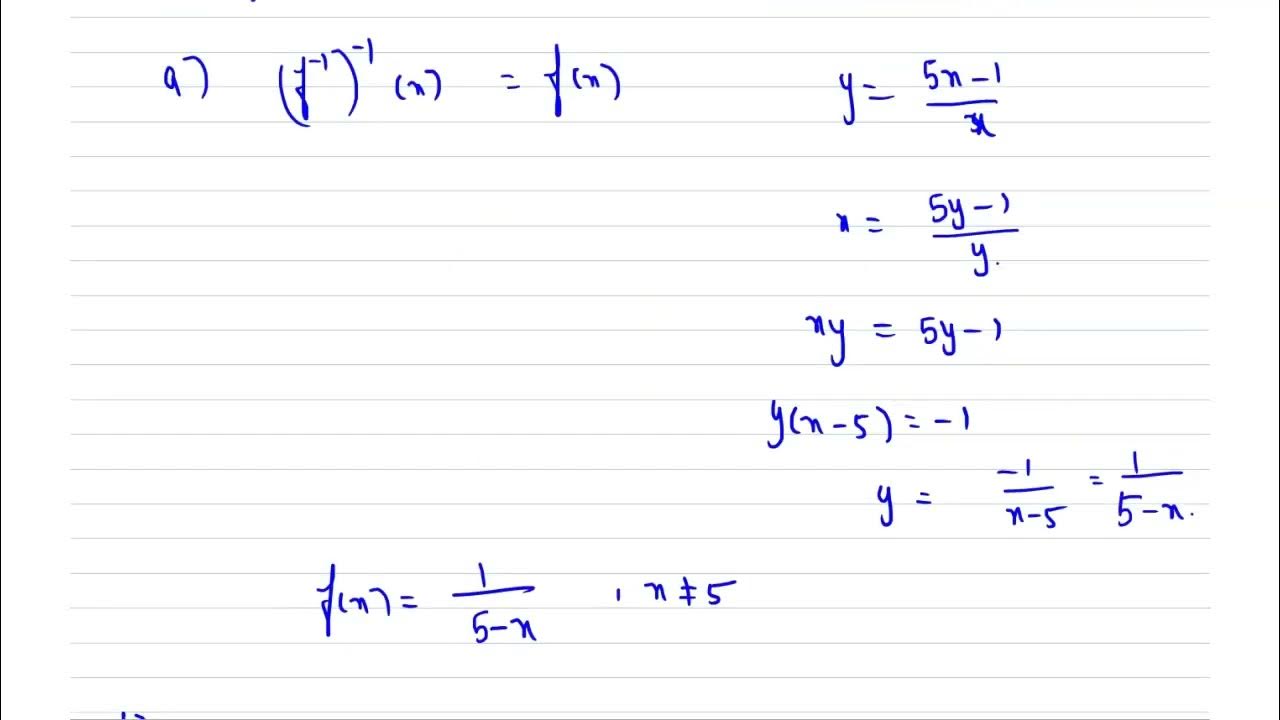 a) (f⁻¹)⁻¹ (x) = f(x)
y = (5x-1)/x
x = (5y-1)/y.
xy = 5y-1
y(x-5) = -1
y = -1/(x-5) = 1/(5-x).
f(x) = 1/(5-x) , x ≠ 5